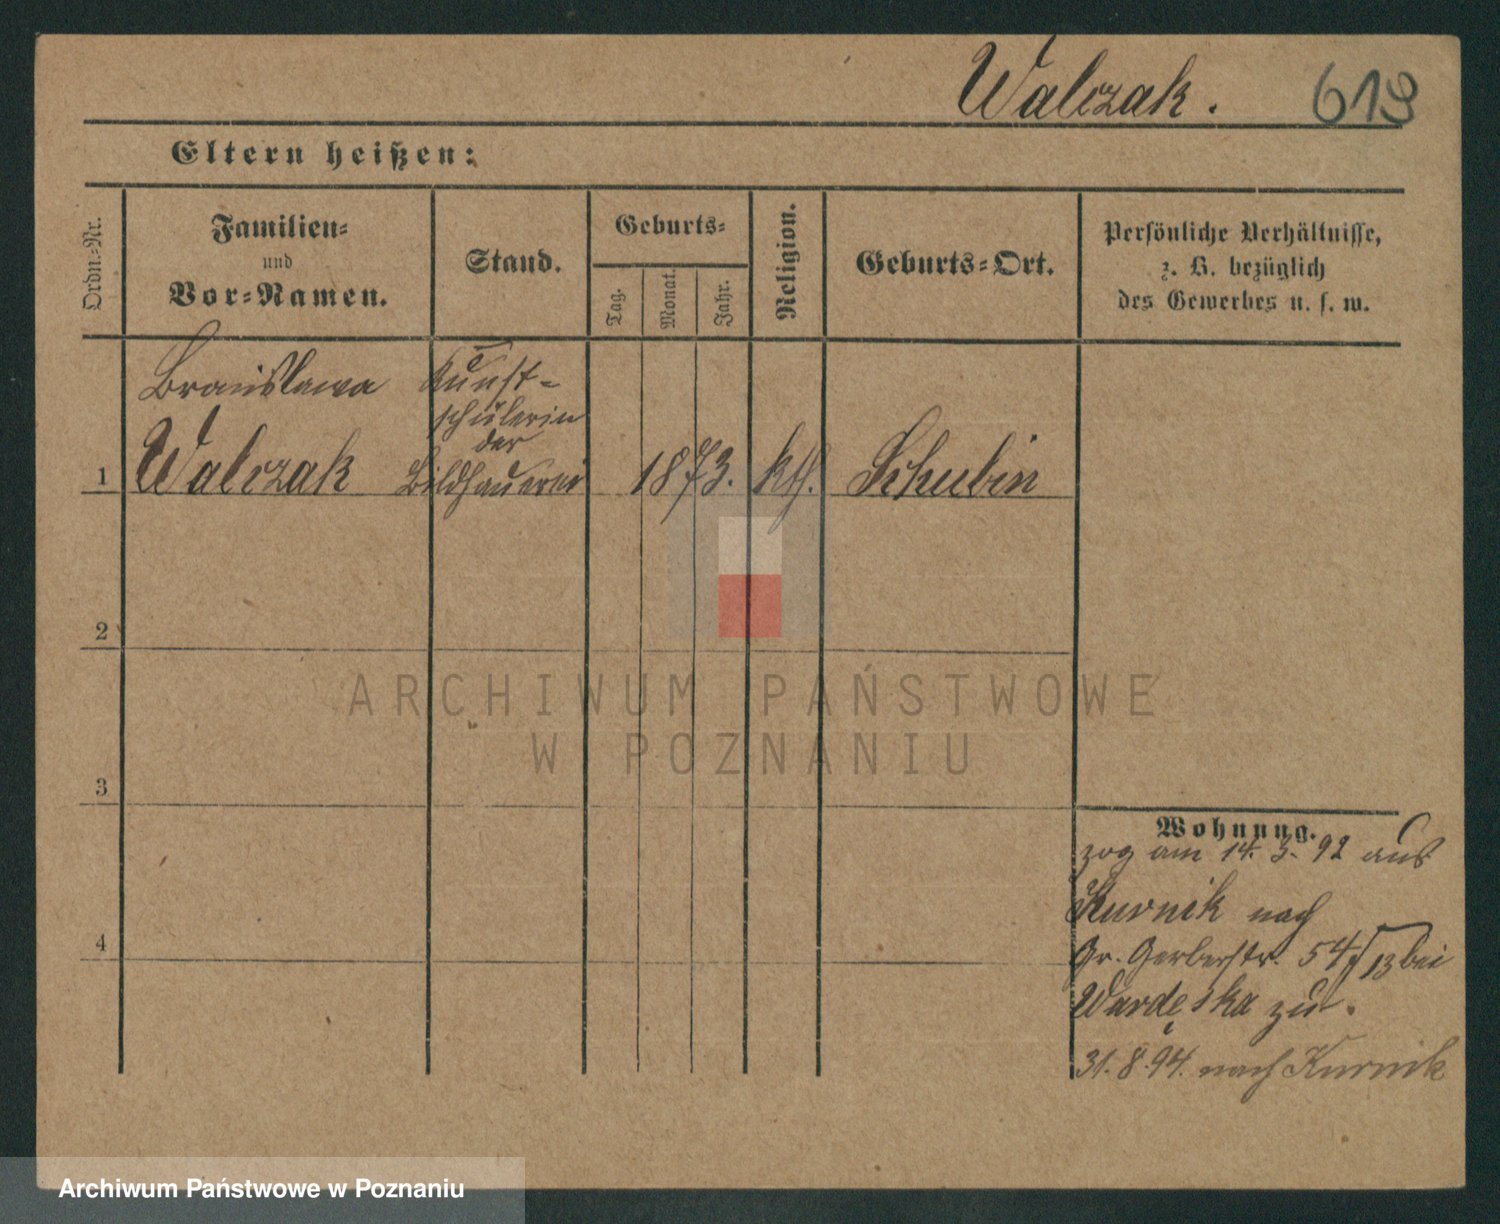 Walczak. 619
Eltern heißen:
Ordn.-Nr.
Familien-
und
Vor-Namen.
Stand.
Geburts-
Tag.
Monat.
Jahr.
Religion.
Geburts-Ort.
Persönliche Verhältnisse,
z. B. bezüglich
des Gewerbes u. s. w.
Bronislawa
Kunst-
schülerin
der
1 Walczak Bildhauerei 1873. kth. Schubin
2
3
4
ARCHIWUM PAŃSTWOWE
W POZNANIU
Wohnung.
zog am 14. 3. 92 aus
Kurnik nach
Gr. Gerberstr. 54 bei
zu.
31. 8. 94. nach Kurnik
Archiwum Państwowe w Poznaniu